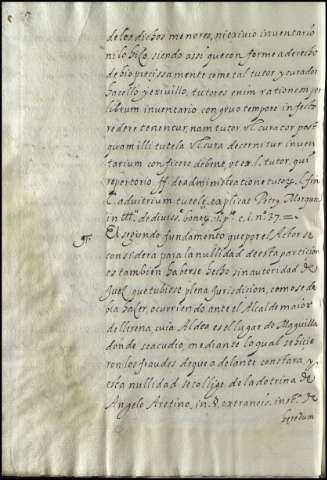 de los dichos menores, ni exivio inventario
ni lo hiço, siendo assi que conforme a derecho
debio precissamente como tal tutor y curador
hacello y exivillo, tutores enim rationem per
librum inventario congruo tempore infecto
redere tenentur, nam tutor vl. curator post
quam illi tutela vl. cura decernitur inven
tarium conficere debent l. tutor qui
repertorio ff. de administratione tutor,
C. arbitrium tutele, explicat Petrus
in de divis. bonor. c. i. nº 37. =
El segundo fundamento que por el Actor se
considera para la nullidad de esta particion
es tambien haberse hecho sin autoridad de
Juez que tubiese plena Jurisdicion, como se de
bia haçer, ocurriendo ante el Alcalde maior
de llerena, cuia Aldea es el lugar de Maguilla
donde se acudio, mediante lo qual se hicie
ron los fraudes de que adelante constara, y
esta nullidad se colige de la dotrina de
Angelo Aretino, in §. extraneis, inst. de
heredum